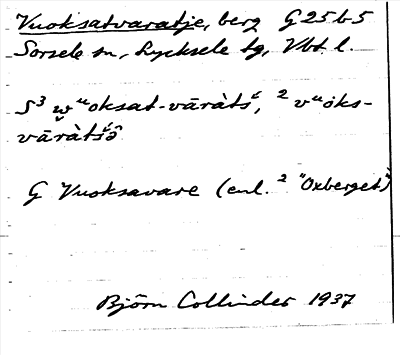 Vuoksatvaratje, berg G 25 b 5
Sorsele sn, Lycksele tg, Vbt. l.
S³ w̬ᵘoksat-vāràtś, ² vᵘȯks-
vāràtśə̑
G Vuoksavare (enl. ² "Oxberget")
Björn Collinder 1937